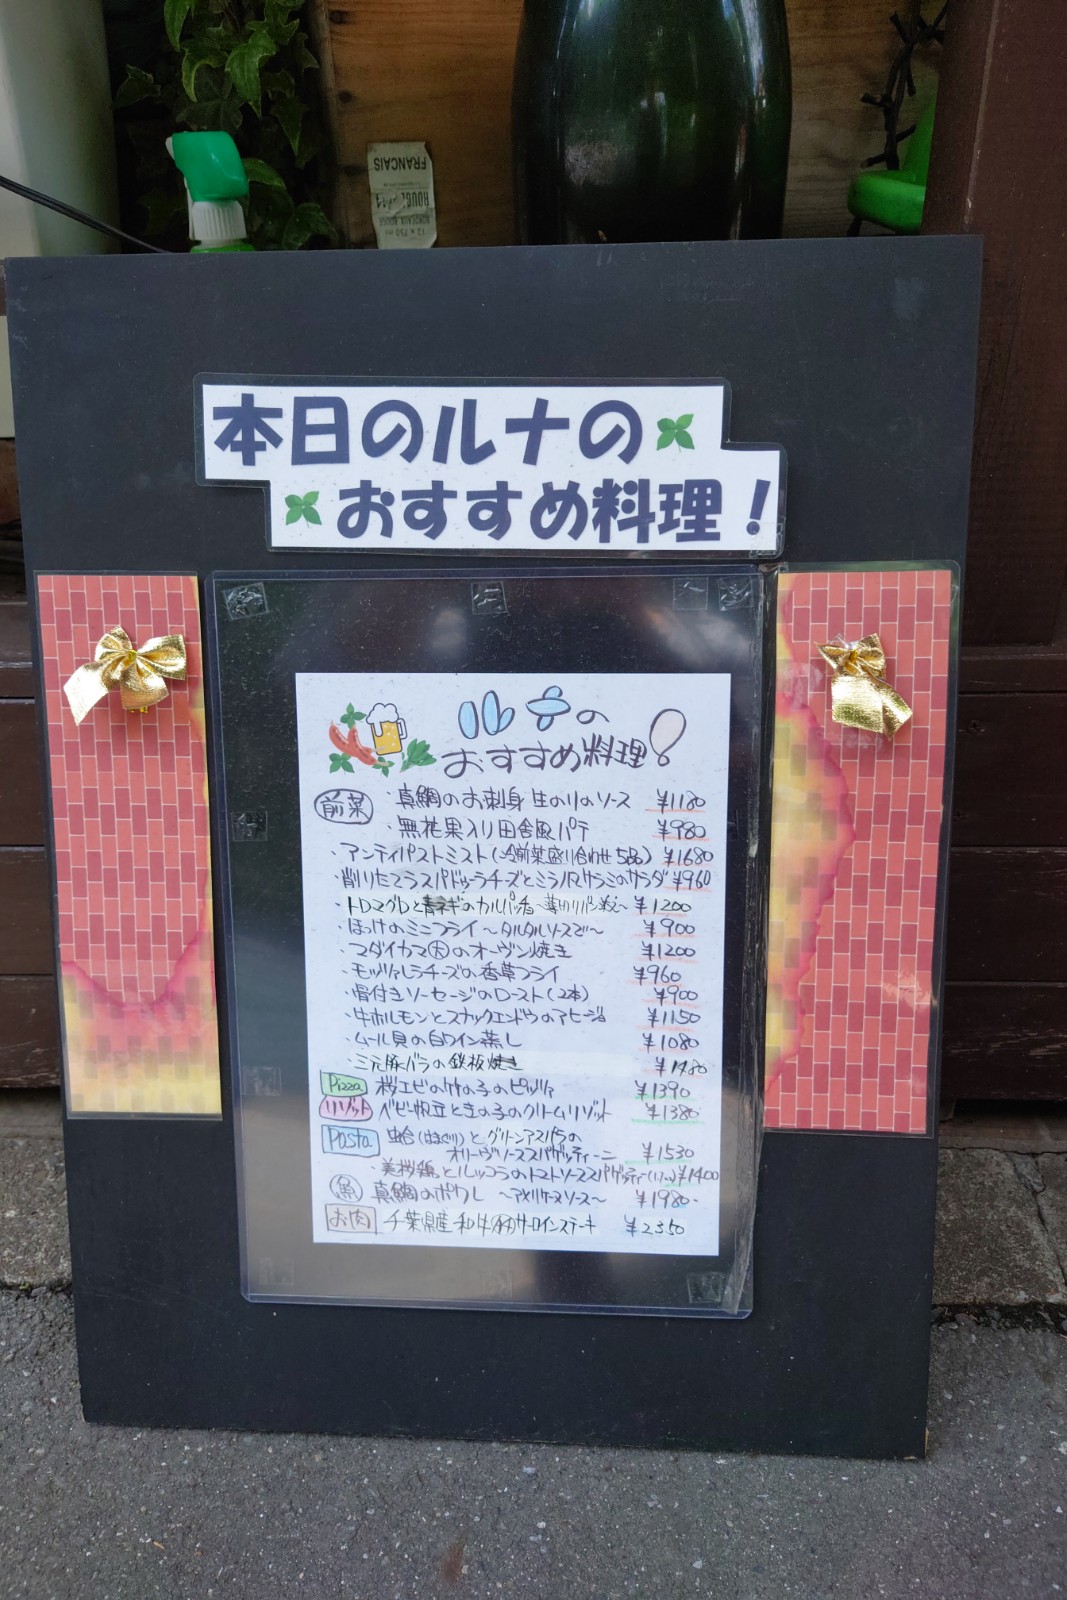 FRANCAIS
ROUGE
BORDEAUX ROUGE
12 x 750 ml
本日のルナの
おすすめ料理！
ルナの
おすすめ料理!
前菜 ・真鯛のお刺身 生のりのソース ¥1180
・無花果入り田舎風パテ ¥980
・アンティパストミスト(冷前菜盛り合わせ5品) ¥1680
・削りたてラスパドゥーラチーズとミラノサラミのサラダ ¥960
・トロマグロと青ネギのカルパッチョ ¥1200
・ほっけのミニフライ 〜タルタルソースで〜 ¥900
・マダイカマ(大)のオーヴン焼き ¥1200
・モッツァレラチーズの香草フライ ¥960
・骨付きソーセージのロースト(2本) ¥900
・牛ホルモンとスナックエンドウのアヒージョ ¥1150
・ムール貝の白ワイン蒸し ¥1080
・三元豚バラの鉄板焼き ¥1480
Pizza 桜エビの竹の子のピッツァ ¥1390
リゾット ベビー帆立ときの子のクリームリゾット ¥1380
Pasta 蛤(はまぐり)とグリーンアスパラの
オリーヴソーススパゲッティーニ ¥1530
・美桜鶏とルッコラのトマトソーススパゲッティーニ ¥1400
魚 真鯛のポワレ 〜アメリケーヌソース〜 ¥1980
お肉 千葉県産 和牛 サーロインステーキ ¥2350